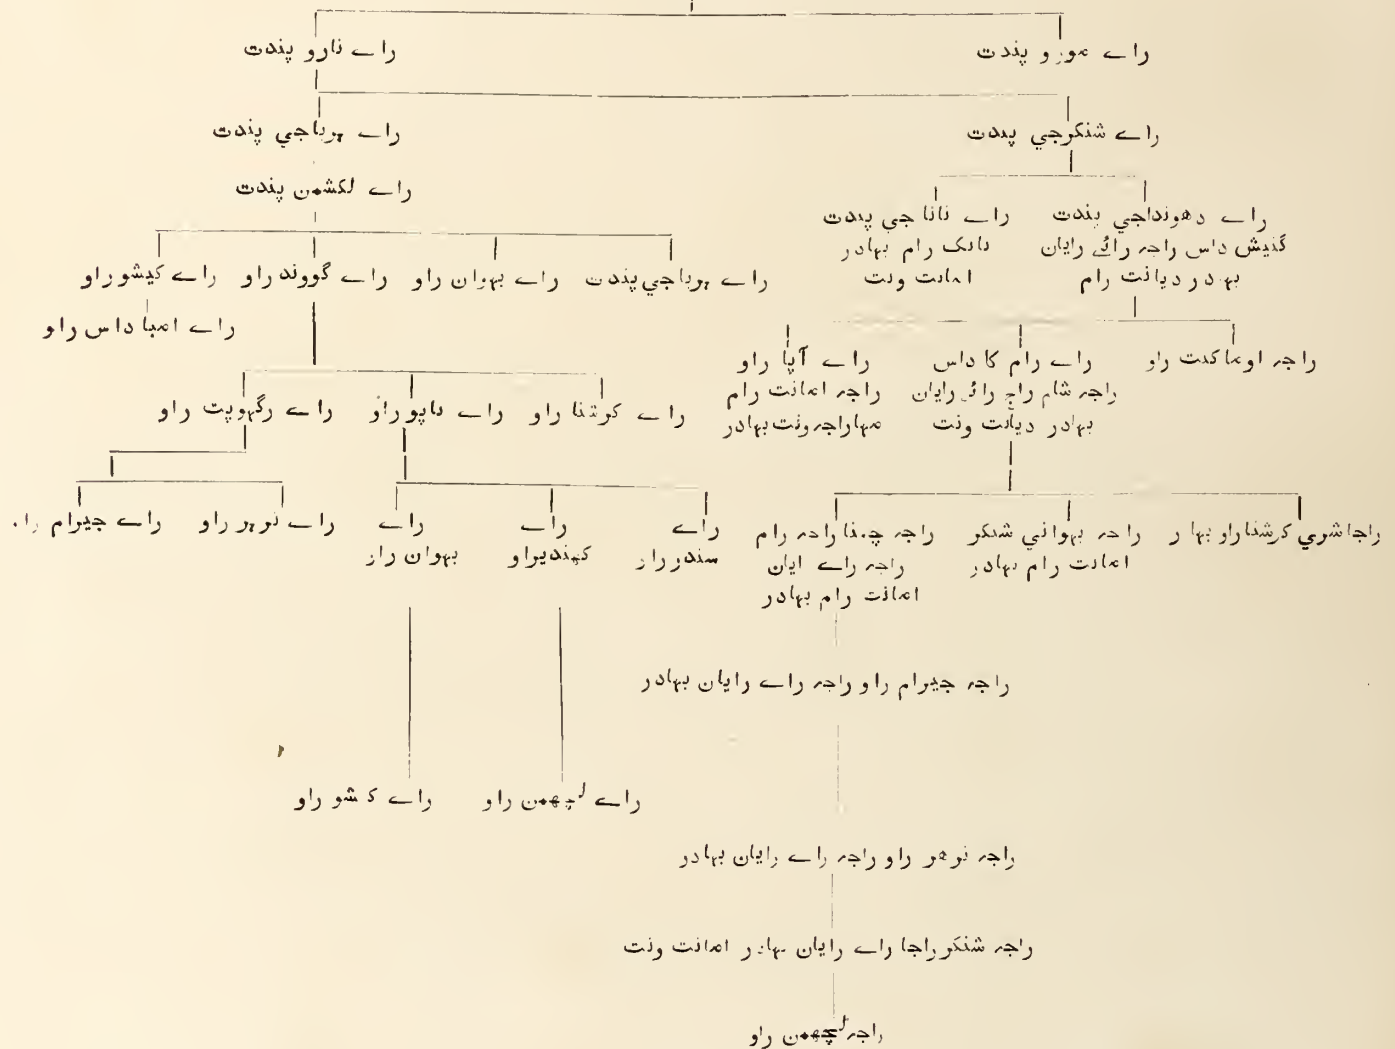 راے مورو پندت
راے نارو پندت
راے شنکرجي پندت
راے ہرباجي پندت
راے لکشمن پندت
راے دهونداجي پندت
گنیش داس راجہ رائے رایان
بہادر دیانت رام
راے نانا جي پندت
نانک رام بہادر
امانت ونت
راے ہرباجي پندت
راے بہوان راو
راے گووند راو
راے کیشو راو
راے امبا داس راو
راجہ اوماکنت راو
راے رام کا داس
راجہ شام راج رائے رایان
بہادر دیانت ونت
راے آپا راو
راجہ امانت رام
مہاراجہ ونت بہادر
راے کرشنا راو
راے باپو راو
راے رگہوپت راو
راجا شري کرشنا راو
راجہ بہواني شنکر
امانت رام بہادر
راجہ راجہ رام
راجہ راے
امانت رام بہادر
راے
سندر راو
راے
کہنڈیراو
راے
بہوان راو
راے نرہر راو
راے جیرام
راجہ جیرام راو راجہ راے رایان بہادر
راے لچهمن راو
راے کشو راو
راجہ نرهر راو راجہ راے رایان بہادر
راجہ شنکر راجا راے رایان بہادر امانت ونت
راجہ لچهمن راو